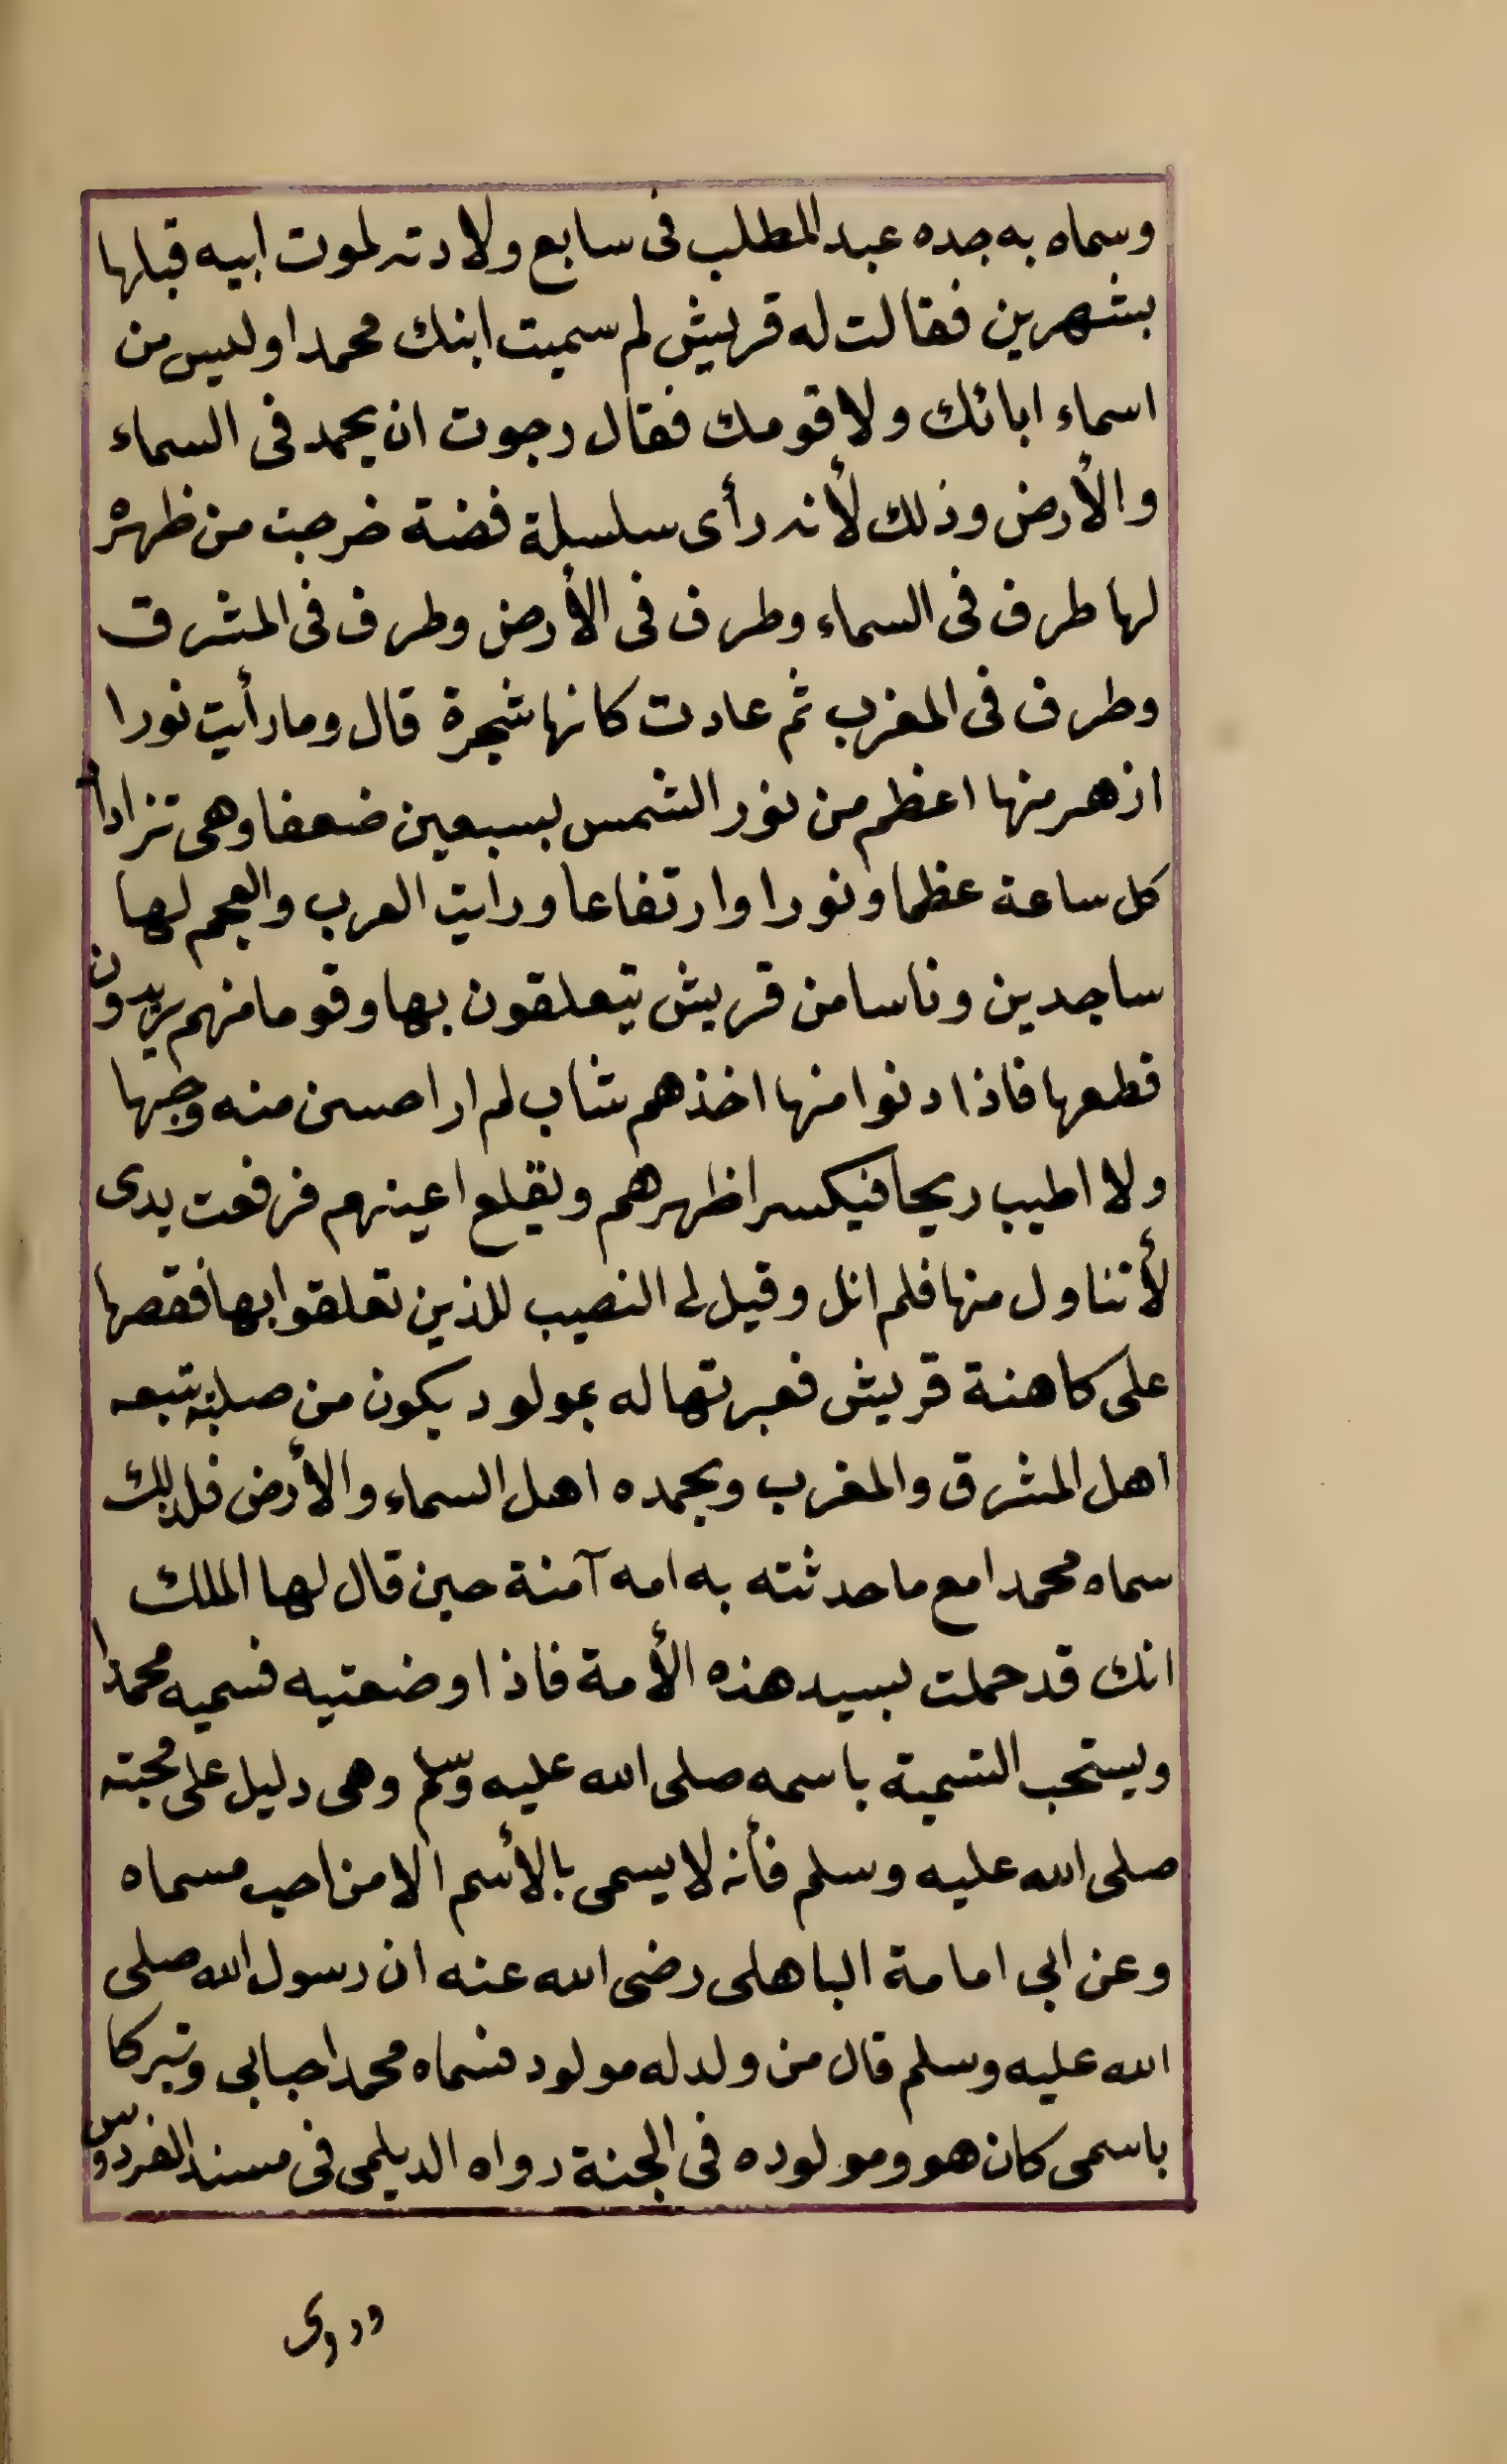 وسماه به جده عبد المطلب فى سابع ولادته لموت ابيه قبلها
بشهرين فقالت له قريش لم سميت ابنك محمدا وليس من
اسماء ابائك ولا قومك فقال رجوت ان يحمد فى السماء
والأرض وذلك لأنه رأى سلسلة فضة خرجت من ظهره
لها طرف فى السماء وطرف فى الأرض وطرف فى المشرق
وطرف فى المغرب ثم عادت كانها شجرة قال وما رأيت نورا
ازهر منها اعظم من نور الشمس بسبعين ضعفا وهى تزاداد
كل ساعة عظما ونورا وارتفاعا ورايت العرب والعجم لها
ساجدين وناسا من قريش يتعلقون بها وقوما منهم يريدون
قطعها فاذا دنوا منها اخذهم شاب لم ار احسن منه وجها
ولا اطيب ريحا فيكسر اظهرهم ويقلع اعينهم فرفعت يدى
لأتناول منها فلم انل وقيل لى النصيب للذين تعلقوا بها فقصها
على كاهنة قريش فعبرتها له بمولود يكون من صلبه يتبعه
اهل المشرق والمغرب ويحمده اهل السماء والأرض فلذلك
سماه محمدا مع ما حدثته به امه آمنة حين قال لها الملك
انك قد حملت بسيد هذه الأمة فاذا وضعتيه فسميه محمدا
ويستحب التسمية باسمه صلى الله عليه وسلم وهى دليل على محبته
صلى الله عليه وسلم فأنه لا يسمى بالأسم الا من احب مسماه
وعن ابى امامة الباهلى رضى الله عنه ان رسول الله صلى
الله عليه وسلم قال من ولد له مولود فسماه محمدا حبا بى وتبركا
باسمى كان هو ومولوده فى الجنة رواه الديلمى فى مسند الفردوس
وروى